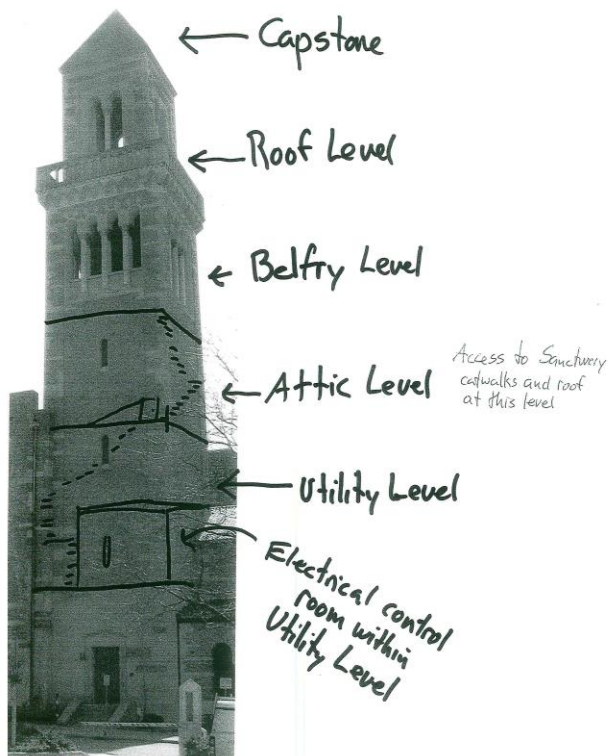 Capstone
Roof Level
Belfry Level
Access to Sanctuary
catwalks and roof
at this level
Attic Level
Utility Level
Electrical control
room within
Utility Level